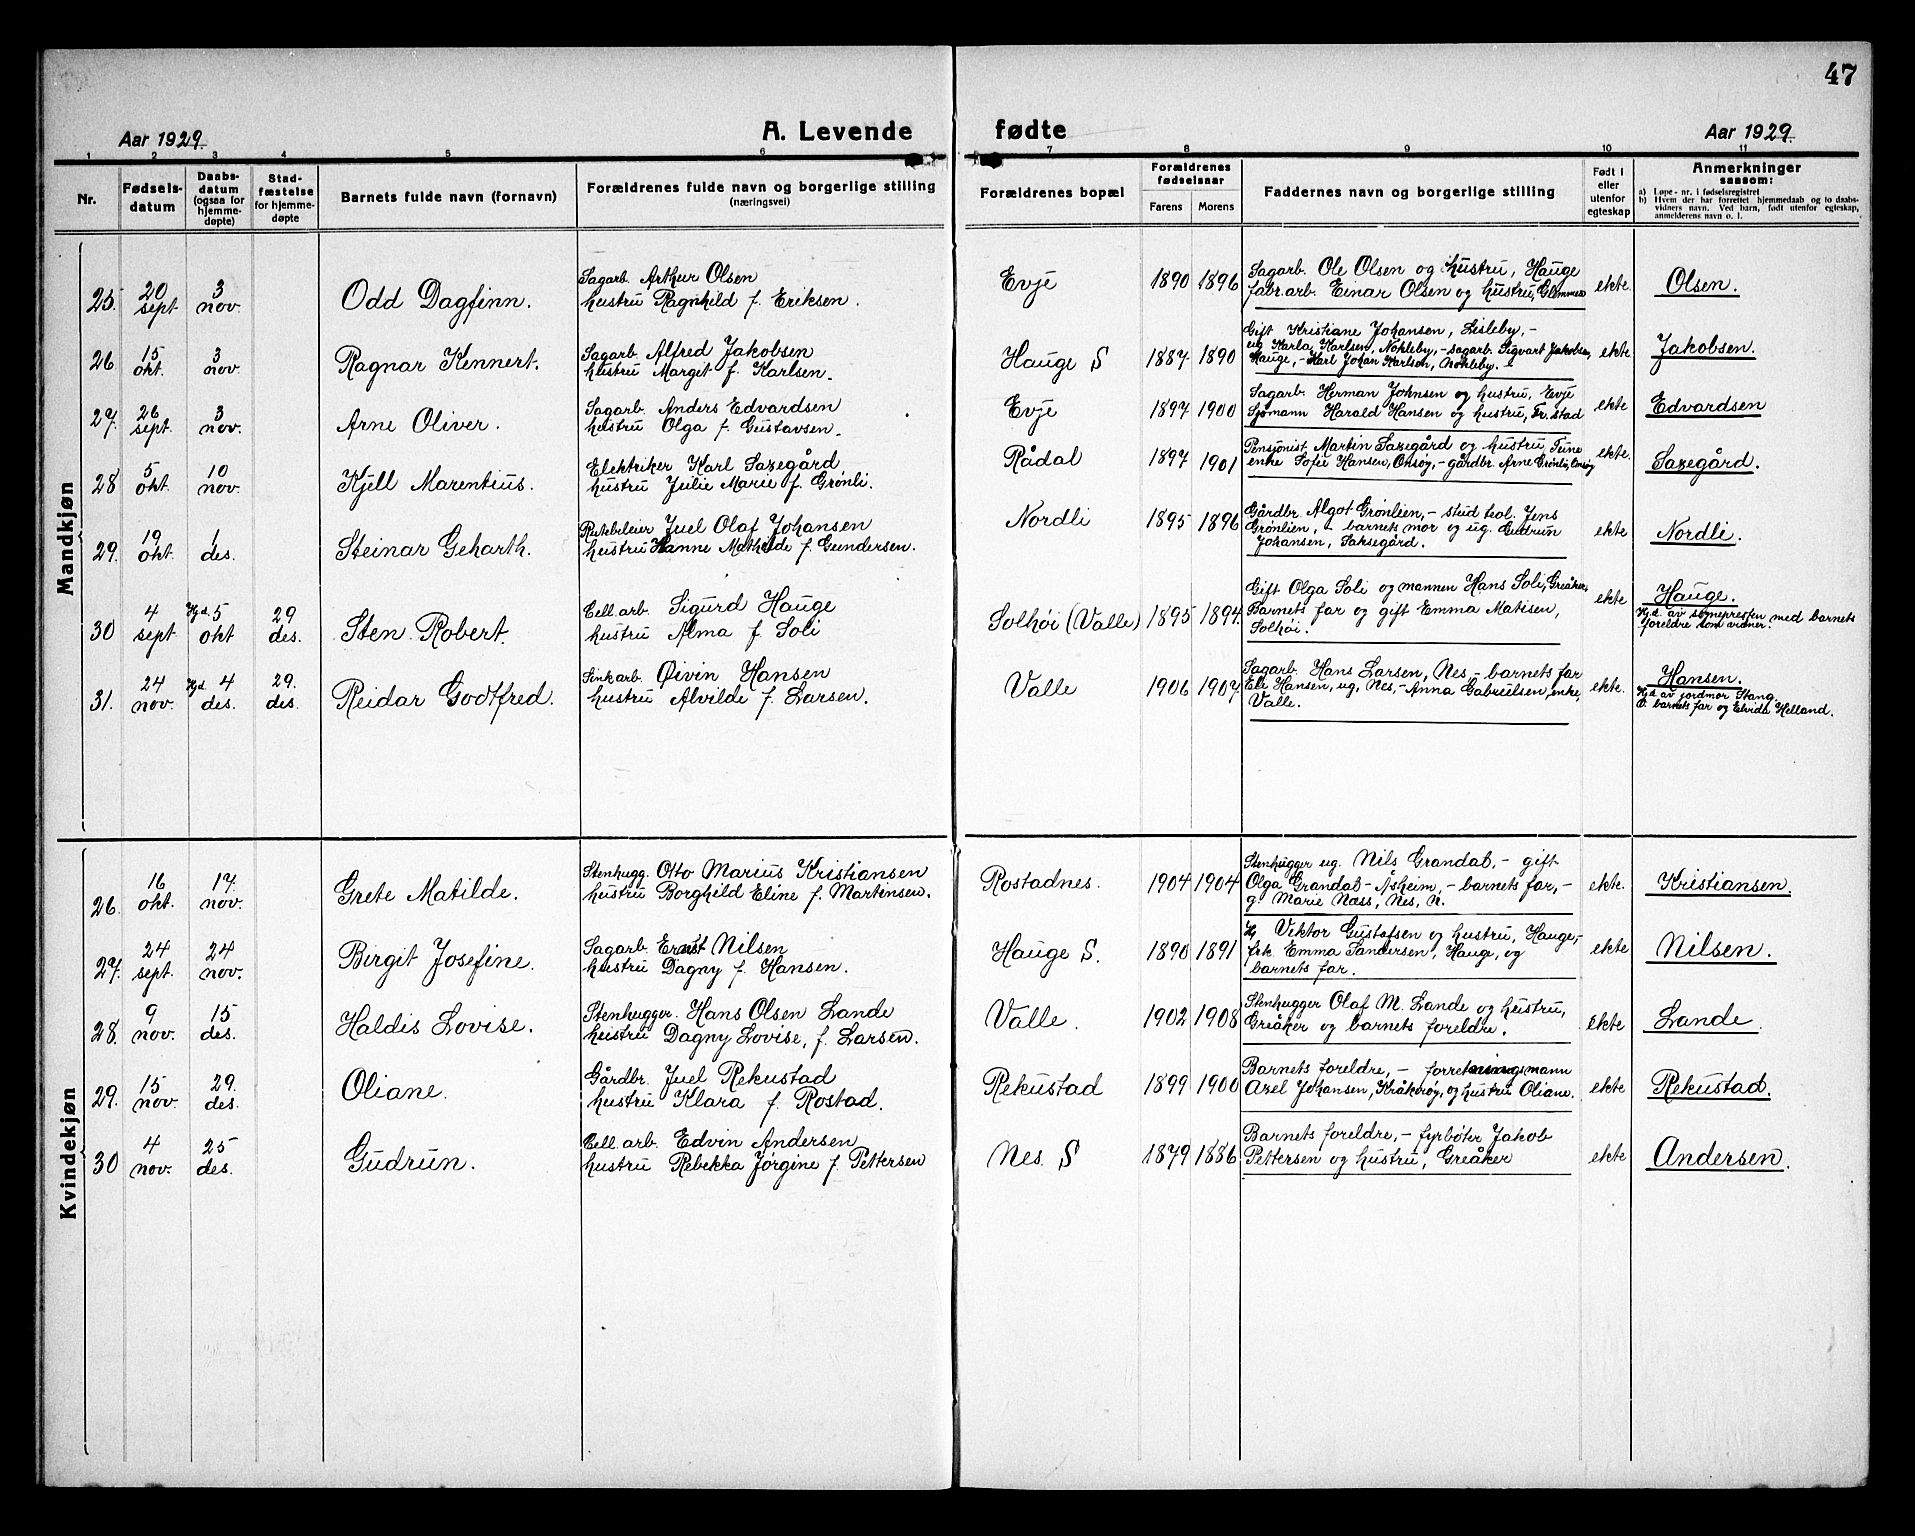 47
Aar 1929.
A. Levende fødte
Aar 1929.
1 2 3 4 5 6 7 8 9 10 11
Nr.
Fødsels-
datum
Daabs-
datum
(ogsaa for
hjemme-
døpte)
Stad-
fæstelse
for hjemme-
døpte
Barnets fulde navn (fornavn)
Forældrenes fulde navn og borgerlige stilling
(næringsvei)
Forældrenes bopæl
Forældrenes
fødselsaar
Farens Morens
Faddernes navn og borgerlige stilling
Født i
eller
utenfor
egteskap
Anmerkninger
saasom:
a) Løpe-nr. i fødselsregistret
b) Hvem der har forrettet hjemmedaab og to daabs-
vidners navn. Ved barn, født utenfor egteskap,
anmelderens navn o. l.
Mandkjøn
25. 20 sept 3 nov. Odd Dagfinn.
Sagarb. Arthur Olsen
hustru Ragnhild f. Eriksen.
Evje 1890 1896
Sagarb. Ole Olsen og hustru, Hauge
fabr.arb. Einar Olsen og hustru, Glemmen
ekte. Olsen.
26. 15 okt. 3 nov. Ragnar Kennert.
Sagarb. Alfred Jakobsen
hustru Margit f. Karlsen.
Hauge S 1887 1890
Gift Kristiane Johansen, Lisleby, -
ug Karla Karlsen, Nokleby, - sagarb. Sigvart Jakobsen,
Hauge, - Karl Johan Karlsen, Nokleby.
ekte Jakobsen.
27. 26 sept. 3 nov. Arne Oliver.
Sagarb. Anders Edvardsen
hustru Olga f. Gustavsen.
Evje 1897 1900
Sagarb. Herman Johnsen og hustru, Evje
Sjømann Harald Hansen og hustru, Fr.stad
ekte Edvardsen
28 5 okt. 10 nov. Kjell Marentius.
Elektriker Karl Saxegård,
hustru Julie Marie f. Grønli.
Rådal 1897 1901
Pensjonist Martin Saxegård og hustru, Tune
enke Sofie Hansen, Onsøy, - gårdbr. Arne Grønli, Onsøy
ekte. Saxegård.
29. 19 okt 1 des. Steinar Geharth.
Rutebileier Juel Olaf Johansen
hustru Hanne Mathilde f. Gundersen.
Nordli 1895 1896
Gårdbr. Algot Grønlien, - stud teol. Jens
Grønlien, - barnets mor og ug. Gudrun
Johansen, Saksegård.
ekte Nordli.
30 4 sept Hjd. 5 okt 29 des. Sten Robert.
Cell. arb. Sigurd Hauge
hustru Alma f. Soli
Solhøi (Valle) 1895 1894.
Gift Olga Soli og mannen Hans Soli, Greåker,
Barnets far og gift Emma Matisen,
Solhøi.
ekte Hauge.
Hjd. av sognepresten med barnets
foreldre som vidner.
31. 24 nov. Hjd. 4 des. 29. des. Reidar Godtfred.
Sinkarb. Øivin Hansen
hustru Alvilde f. Larsen.
Valle 1906 1907
Sagarb. Hans Larsen, Nes, - barnets far
Eli Hansen, ug, Nes, - Anna Gabrielsen, enke,
Valle.
ekte. Hansen.
Hjd. av jordmor Stang
barnets far og Elvida Helland.
Kvindekjøn
26. 16 okt. 17. nov. Grete Matilde.
Stenhugg. Otto Marius Kristiansen
hustru Borghild Eline f. Martinsen.
Rostadnes. 1904 1904
Stenhugger ug. Nils Grandal, - gift
Olga Grandal - Åsheim, - barnets far, -
g. Marie Næss, Nes, N.
ekte. Kristiansen.
27. 24 sept 24 nov. Birgit Josefine.
Sagarb. Ernst Nilsen
hustru Dagny f. Hansen.
Hauge S. 1890 1891
Viktor Gustafsen og hustru, Hauge, -
frk. Emma Sandersen, Hauge, og
barnets far.
ekte Nilsen.
28. 9 nov. 15 des. Haldis Lovise.
Stenhugger. Hans Olsen Lande
hustru Dagny Lovise, f. Larsen.
Valle. 1902 1908
Stenhugger Olaf M. Lande og hustru,
Greåker og barnets foreldre.
ekte Lande
29. 15 nov. 29. des. Oliane.
Gårdbr. Juel Rekustad
hustru Klara f. Rostad.
Rekustad 1899 1900
Barnets foreldre, - forretningsmann
Axel Johansen, Kråkerøy, og hustru Oliane.
ekte Rekustad.
30 4 nov. 25 des. Gudrun.
Cell. arb. Edvin Andersen
hustru Rebekka Jørgine f. Pettersen
Nes S 1879 1886
Barnets foreldre, - fyrbøter Jakob
Pettersen og hustru, Greåker
ekte Andersen.